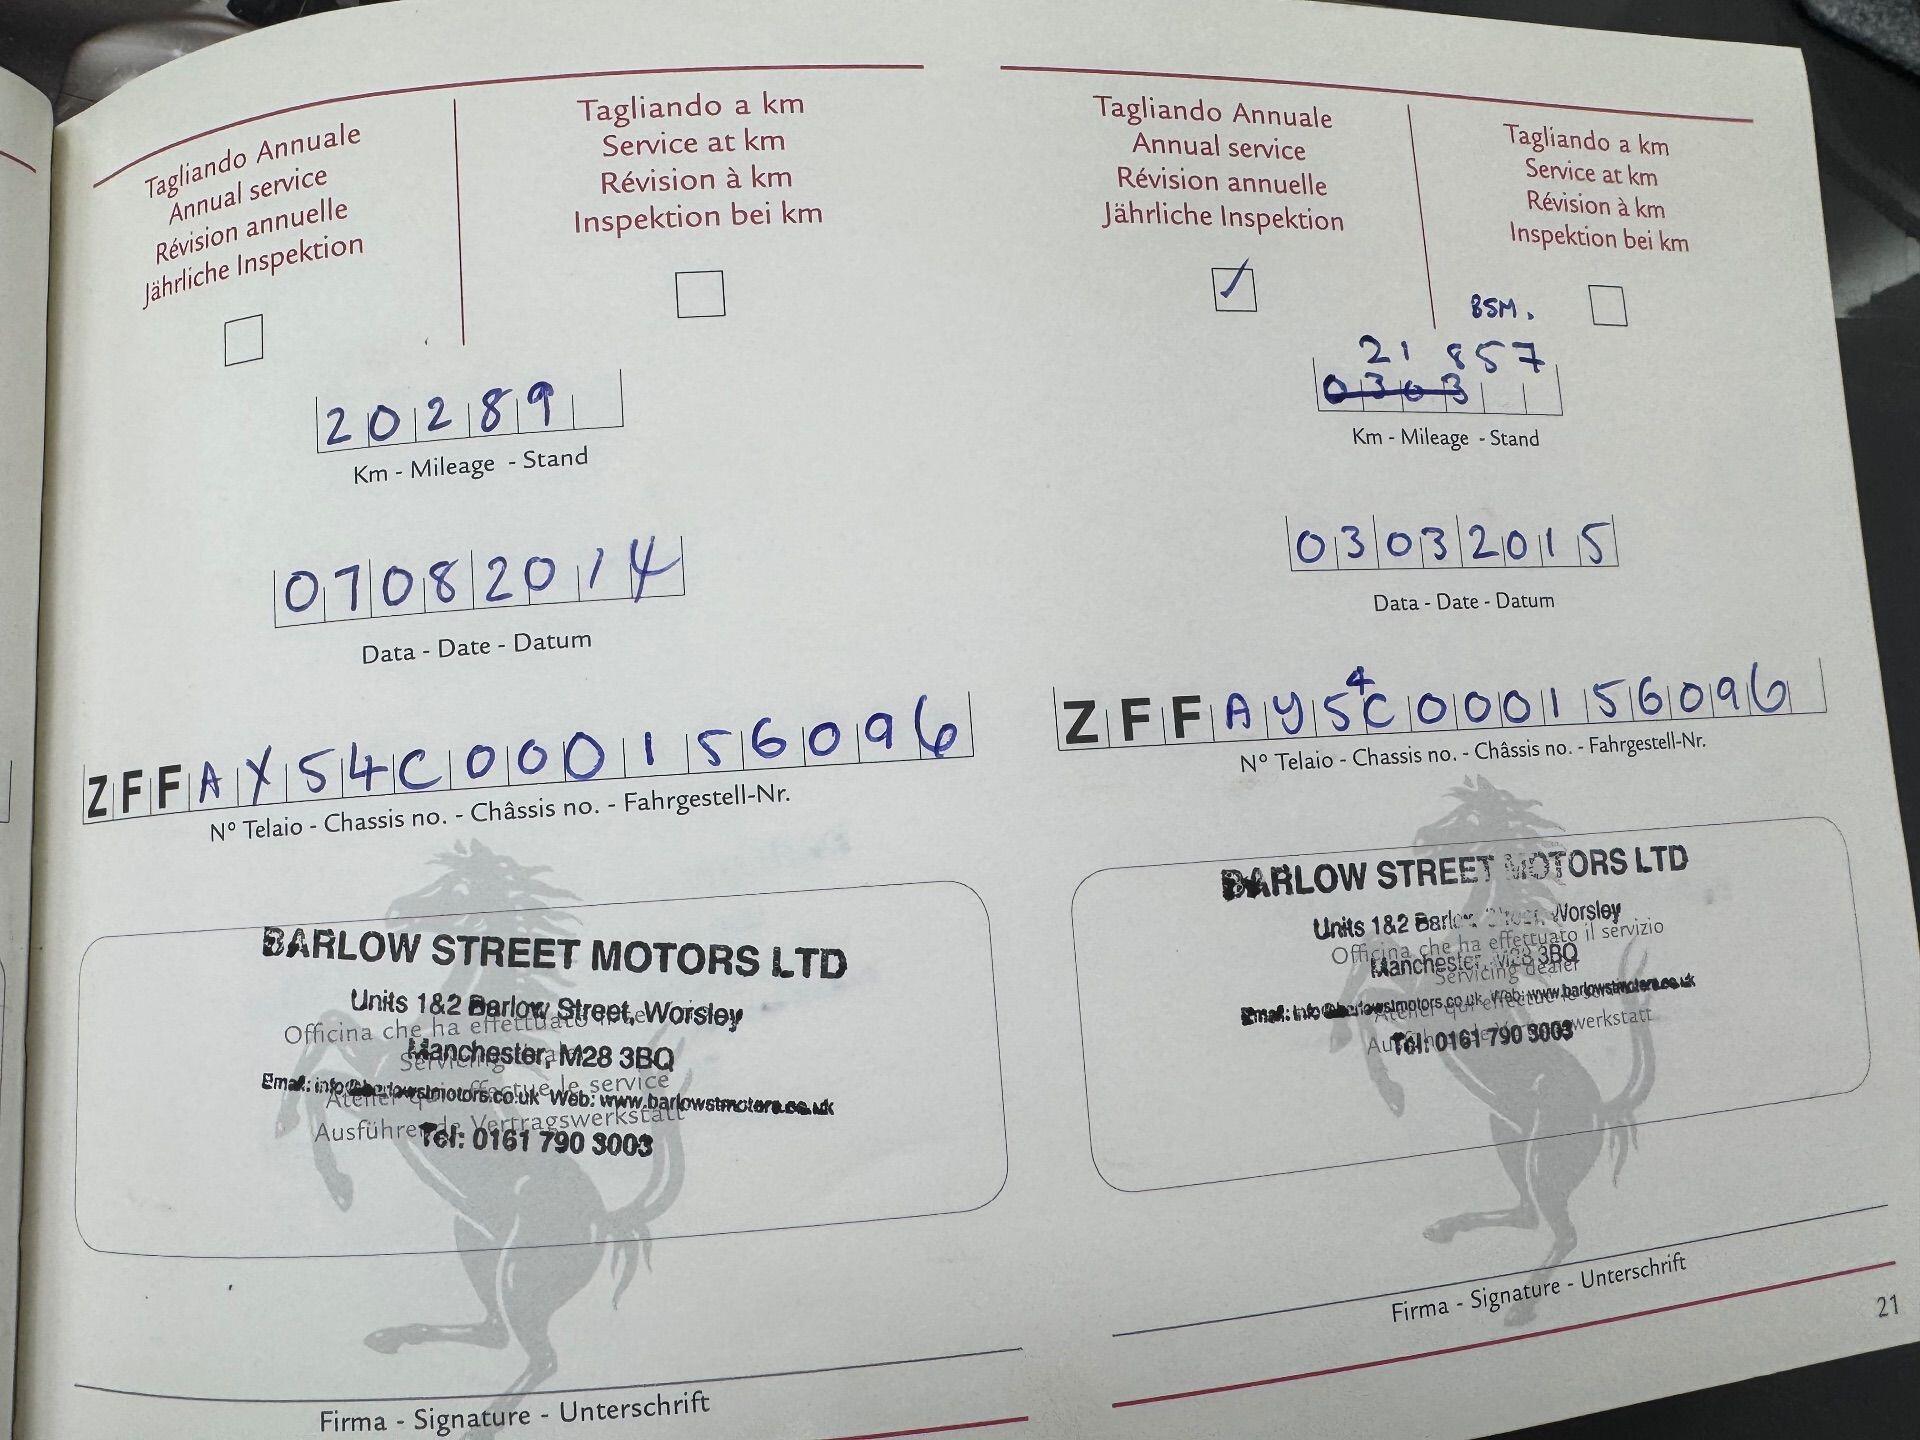 Tagliando Annuale
Annual service
Révision annuelle
Jährliche Inspektion
Tagliando a km
Service at km
Révision à km
Inspektion bei km
20289
Km - Mileage - Stand
07082014
Data - Date - Datum
ZFFAY54C000156096
Nº Telaio - Chassis no. - Châssis no. - Fahrgestell-Nr.
BARLOW STREET MOTORS LTD
Units 1&2 Barlow Street, Worsley
Officina che ha effettuato il
Manchester, M28 3BQ
Servicing
Email: info@barlowstmotors.co.uk Web: www.barlowstmotors.co.uk
Atelier qui effectue le service
Ausführende Vertragswerkstatt
Tel: 0161 790 3003
Firma - Signature - Unterschrift
Tagliando Annuale
Annual service
Révision annuelle
Jährliche Inspektion
Tagliando a km
Service at km
Révision à km
Inspektion bei km
BSM.
21 857
0303
Km - Mileage - Stand
03032015
Data - Date - Datum
4
ZFFAY5C000156096
Nº Telaio - Chassis no. - Châssis no. - Fahrgestell-Nr.
BARLOW STREET MOTORS LTD
Units 1&2 Barlow Street, Worsley
Officina che ha effettuato il servizio
Manchester, M28 3BQ
Servicing dealer
Email: info@barlowstmotors.co.uk Web: www.barlowstmotors.co.uk
Atelier qui effectue le
Tel: 0161 790 3003
Firma - Signature - Unterschrift
21